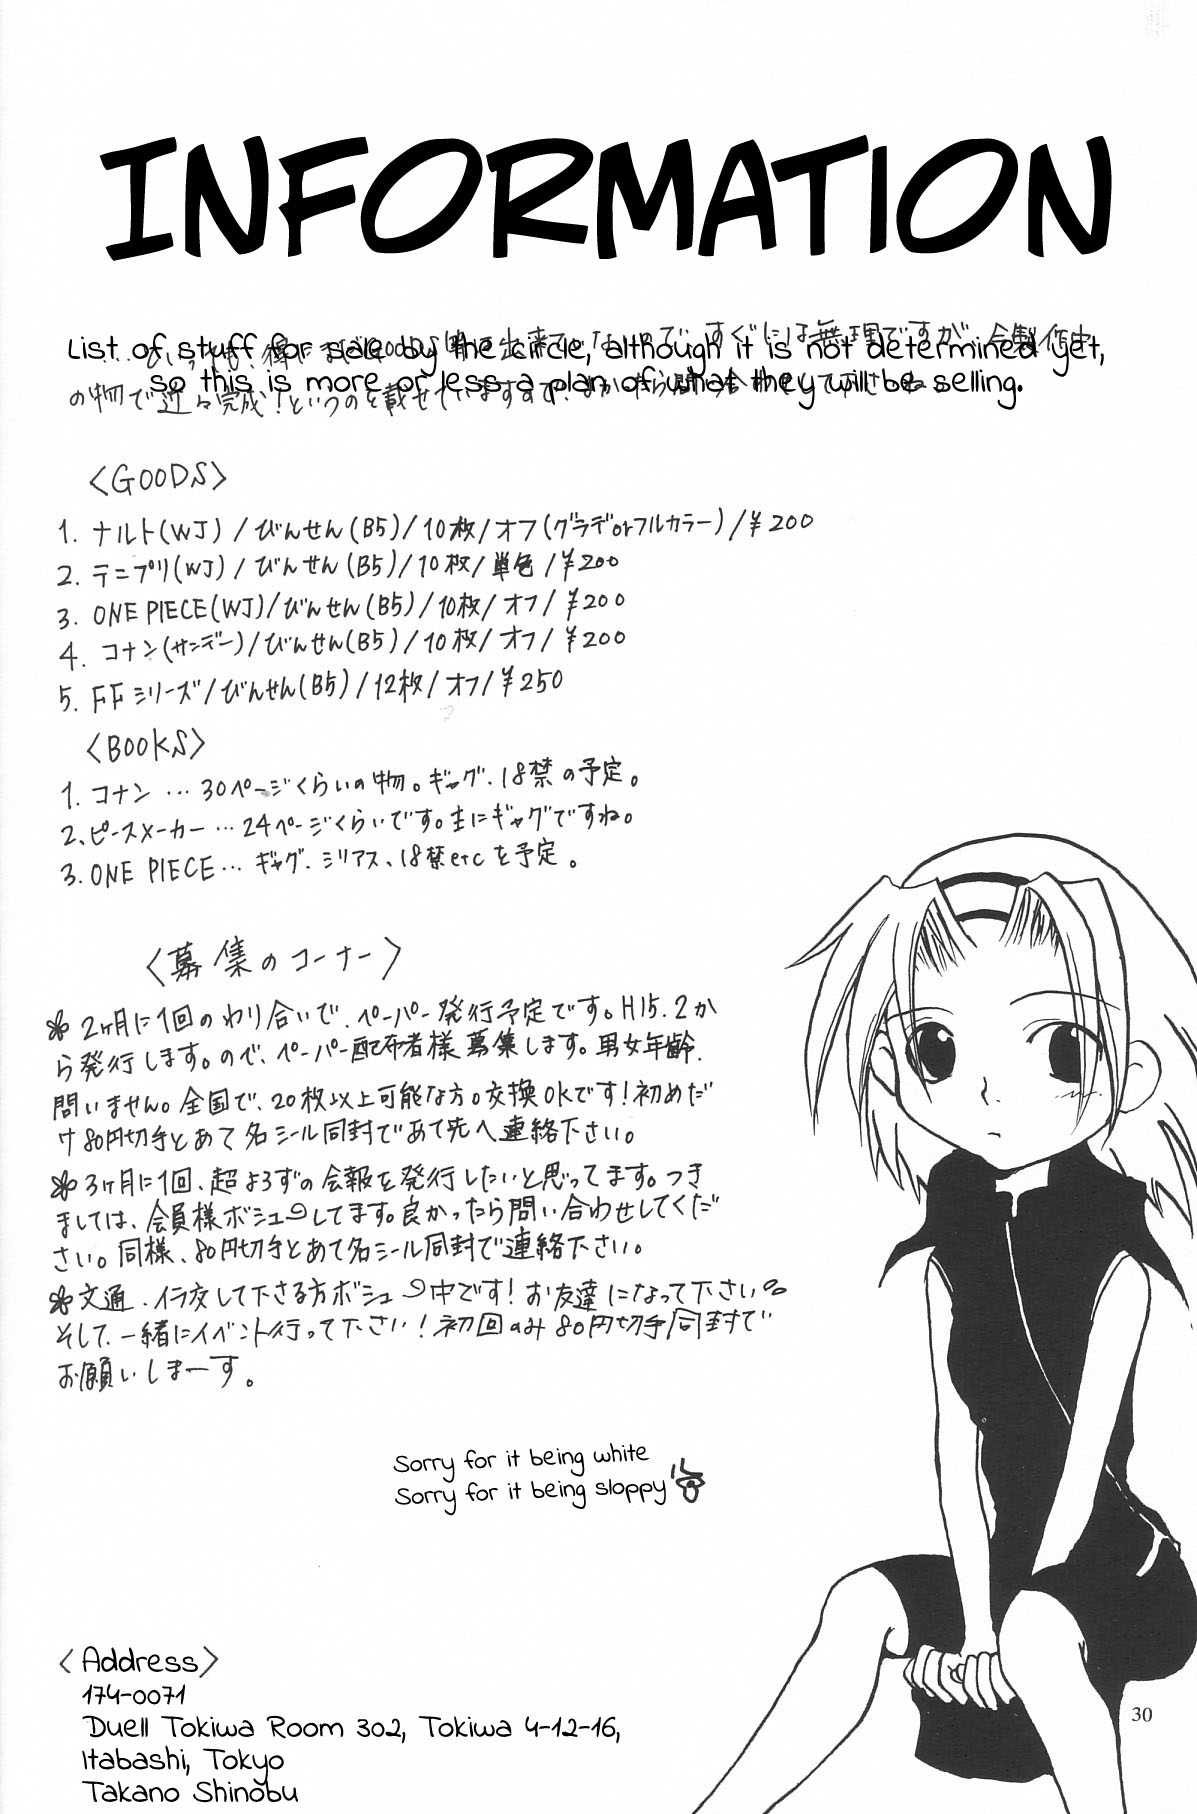 INFORMATION
List of stuff for sale by the circle, although it is not determined yet,
so this is more or less a plan of what they will be selling.
の物で近々完成！というのを載せています
〈GOODS〉
1. ナルト(WJ)/びんせん(B5)/10枚/オフ(グラデorフルカラー)/¥200
2. テニプリ(WJ)/びんせん(B5)/10枚/単色/¥200
3. ONE PIECE(WJ)/びんせん(B5)/10枚/オフ/¥200
4. コナン(サンデー)/びんせん(B5)/10枚/オフ/¥200
5. FFシリーズ/びんせん(B5)/12枚/オフ/¥250
〈BOOKS〉
1. コナン…30ページくらいの物。ギャグ、18禁の予定。
2. ピースメーカー…24ページくらいです。主にギャグですね。
3. ONE PIECE…ギャグ、シリアス、18禁etcを予定。
〈募集のコーナー〉
2ヶ月に1回のわり合いで、ペーパー発行予定です。H15.2か
ら発行します。ので、ペーパー配布者様募集します。男女年齢、
問いません。全国で、20枚以上可能な方。交換OKです！初めだ
け80円切手とあて名シール同封であて先へ連絡下さい。
3ヶ月に1回、超よろずの会報を発行したいと思ってます。つき
ましては、会員様ボシューしてます。良かったら問い合わせしてくだ
さい。同様、80円切手とあて名シール同封で連絡下さい。
文通、イラ交して下さる方ボシュー中です！お友達になって下さい
そして、一緒にイベント行って下さい！初回のみ80円切手同封で
お願いしまーす。
Sorry for it being white
Sorry for it being sloppy
〈Address〉
174-0071
Duell Tokiwa Room 302, Tokiwa 4-12-16,
Itabashi, Tokyo
Takano Shinobu
30